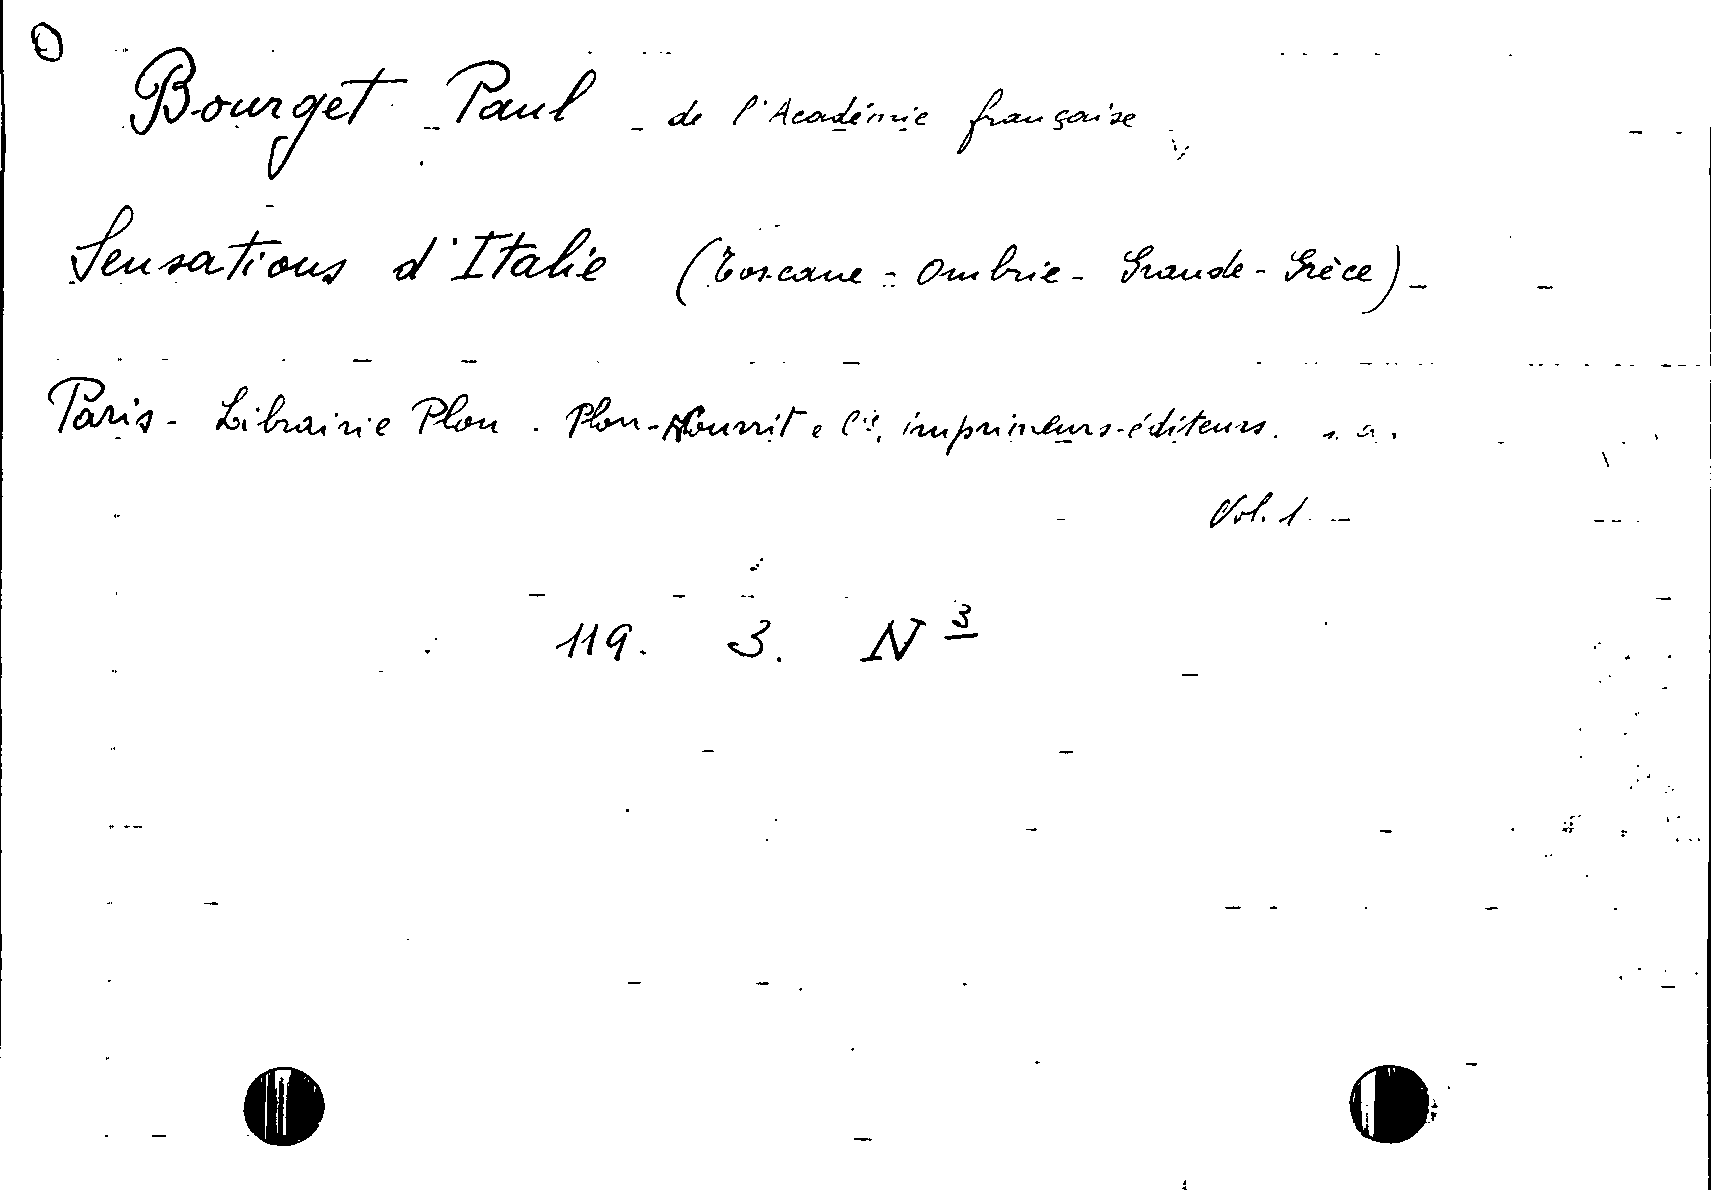 Bourget Paul - de l'Académie française
Sensations d'Italie (Toscane - Ombrie - Grande - Grèce) -
Paris - Librairie Plon . Plon-Nourrit e C.ie, imprimeurs-éditeurs. s. a.
Vol. 1. -
119. 3. N 3